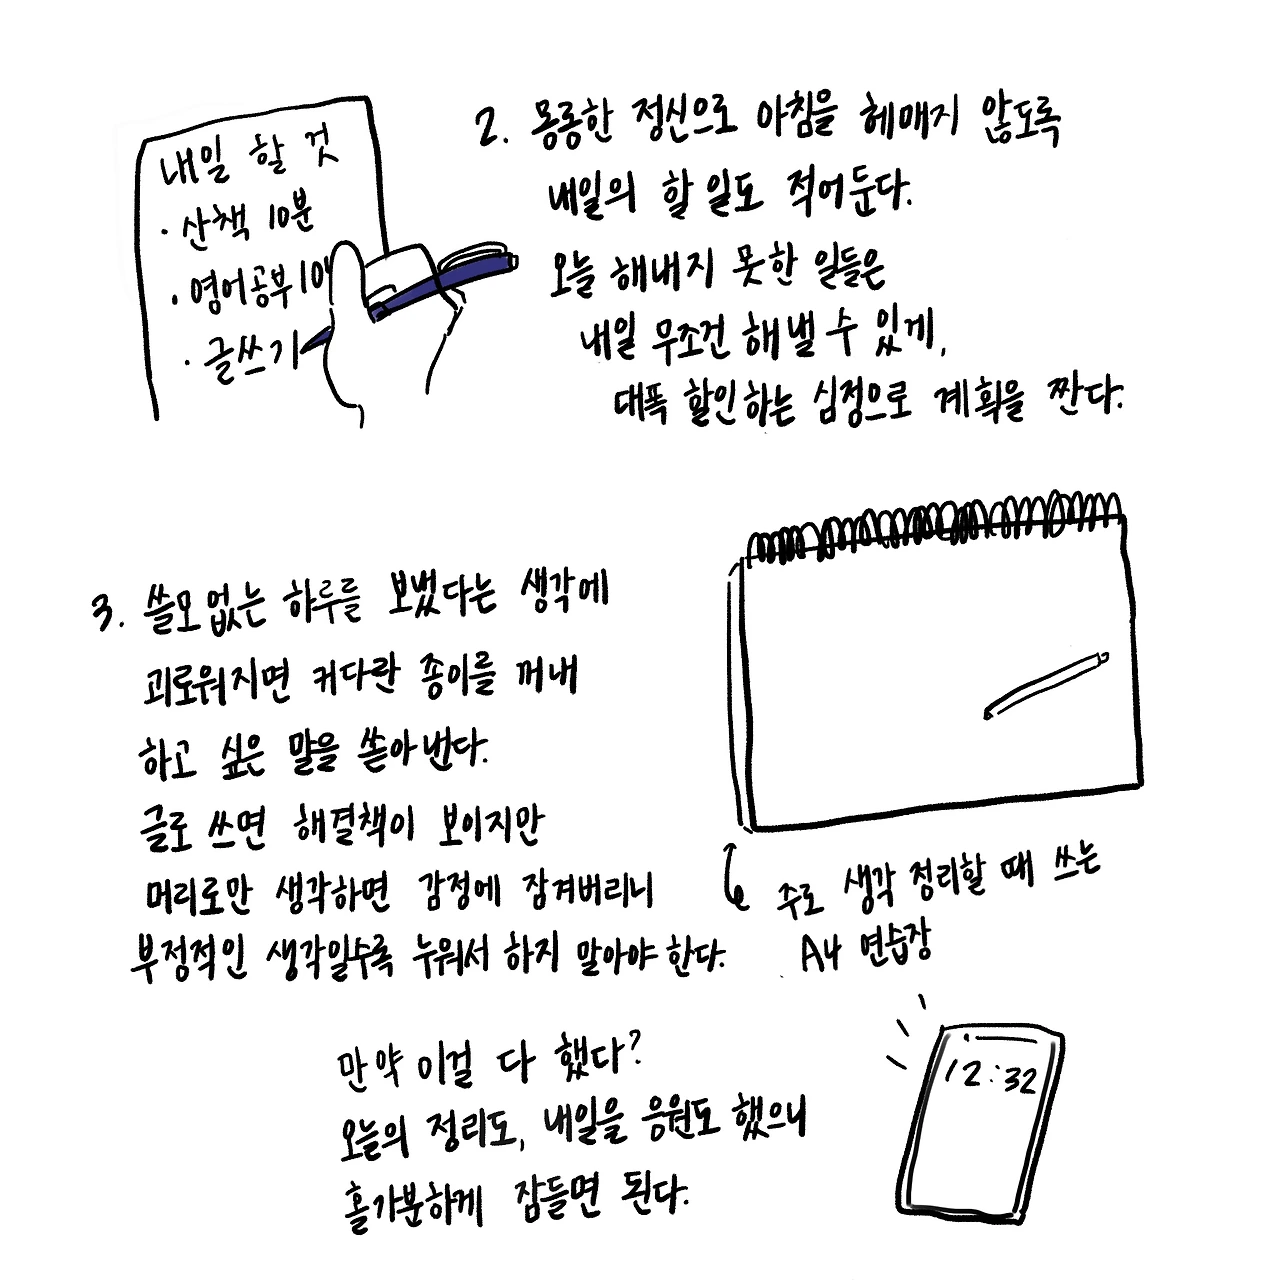 내일 할 것
· 산책 10분
· 영어공부 10
· 글쓰기
2. 몽롱한 정신으로 아침을 헤매지 않도록
내일의 할 일도 적어둔다.
오늘 해내지 못한 일들은
내일 무조건 해낼 수 있게,
대폭 할인하는 심정으로 계획을 짠다.
3. 쓸모 없는 하루를 보냈다는 생각에
괴로워지면 커다란 종이를 꺼내
하고 싶은 말을 쏟아낸다.
글로 쓰면 해결책이 보이지만
머리로만 생각하면 감정에 잠겨버리니
부정적인 생각일수록 누워서 하지 말아야 한다.
주로 생각 정리할 때 쓰는
A4 연습장
만약 이걸 다 했다?
오늘의 정리도, 내일을 응원도 했으니
홀가분하게 잠들면 된다.
12:32